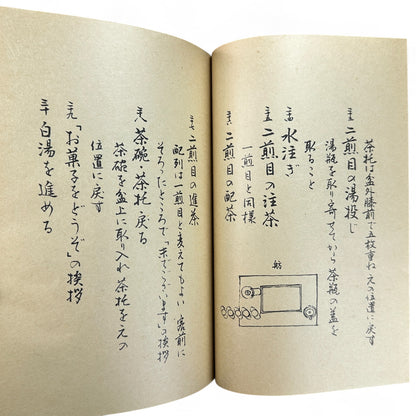 茶托は盆外膝前で五枚重ね元の位置に戻す
二十三 二煎目の湯投じ
湯瓶を取り寄せてから茶瓶の蓋を
取ること
二十四 水注ぎ
二十五 二煎目の注茶
一煎目と同様
二十六 二煎目の配茶
二十七 二煎目の進茶
配列は一煎目と変えてもよい 客前に
そろったところで「末でございます」の挨拶
二十八 茶碗、茶托戻る
茶碗を盆上に取り入れ茶托を元の
位置に戻す
二十九 「お菓子をどうぞ」の挨拶
三十 白湯を進める